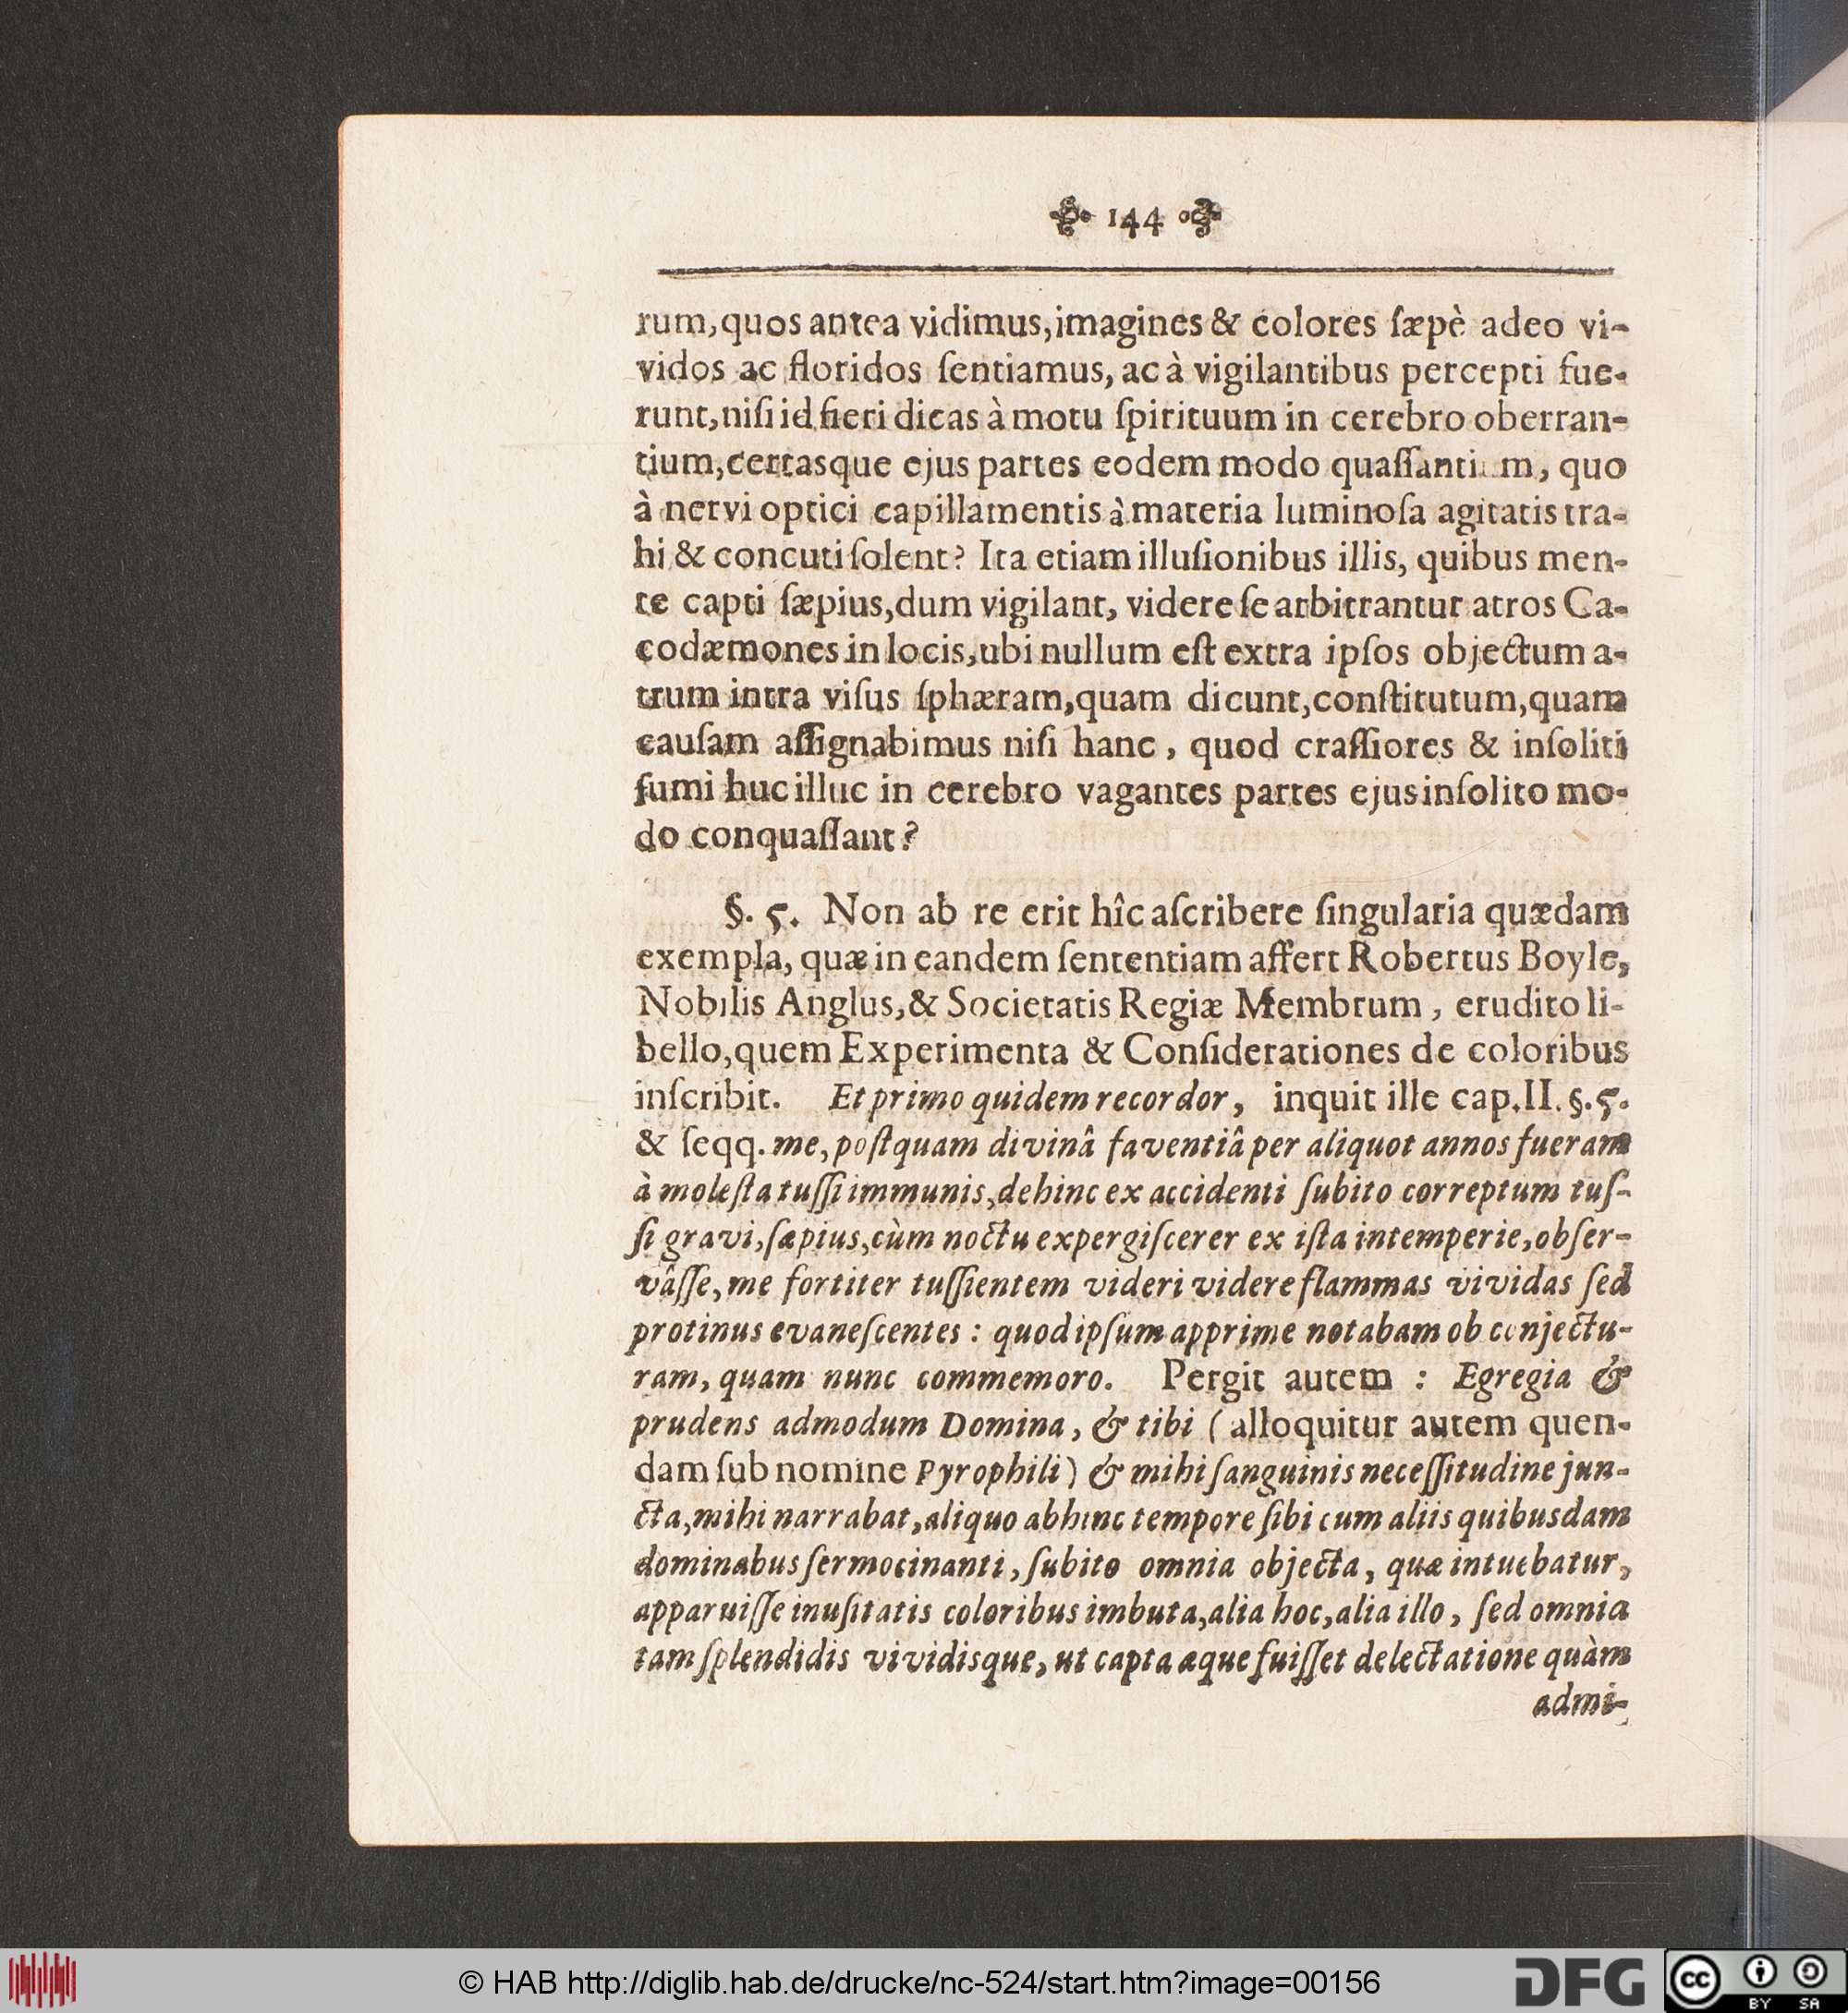 144
rum, quos antea vidimus, imagines & colores ſæpè adeo vi-
vidos ac floridos ſentiamus, ac à vigilantibus percepti fue-
runt, niſi id fieri dicas à motu ſpirituum in cerebro oberran-
tium, certasque ejus partes eodem modo quaſſantium, quo
à nervi optici capillamentis à materia luminoſa agitatis tra-
hi & concuti ſolent? Ita etiam illuſionibus illis, quibus men-
te capti ſæpius, dum vigilant, videre ſe arbitrantur atros Ca-
codæmones in locis, ubi nullum eſt extra ipſos objectum a-
trum intra viſus ſphæram, quam dicunt, conſtitutum, quam
cauſam aſſignabimus niſi hanc, quod craſſiores & inſoliti
fumi huc illuc in cerebro vagantes partes ejus inſolito mo-
do conquaſſant?
§. 5. Non ab re erit hîc aſcribere ſingularia quædam
exempla, quæ in eandem ſententiam affert Robertus Boyle,
Nobilis Anglus, & Societatis Regiæ Membrum, erudito li-
bello, quem Experimenta & Conſiderationes de coloribus
inſcribit. Et primo quidem recordor, inquit ille cap. II. §. 5.
& ſeqq. me, poſtquam divinâ faventiâ per aliquot annos fueram
à moleſta tuſſi immunis, dehinc ex accidenti ſubito correptum tuſ-
ſi gravi, ſæpius, cùm noctu expergiſcerer ex iſta intemperie, obſer-
vâſſe, me fortiter tuſſientem videri videre flammas vividas ſed
protinus evaneſcentes: quod ipſum apprime notabam ob conjectu-
ram, quam nunc commemoro. Pergit autem: Egregia &
prudens admodum Domina, & tibi (alloquitur autem quen-
dam ſub nomine Pyrophili) & mihi ſanguinis neceſſitudine jun-
cta, mihi narrabat, aliquo abhinc tempore ſibi cum aliis quibusdam
dominabus ſermocinanti, ſubito omnia objecta, quæ intuebatur,
apparuiſſe inuſitatis coloribus imbuta, alia hoc, alia illo, ſed omnia
tam ſplendidis vividisque, ut capta æque fuiſſet delectatione quàm
admi-
© HAB http://diglib.hab.de/drucke/nc-524/start.htm?image=00156
DFG
cc BY SA